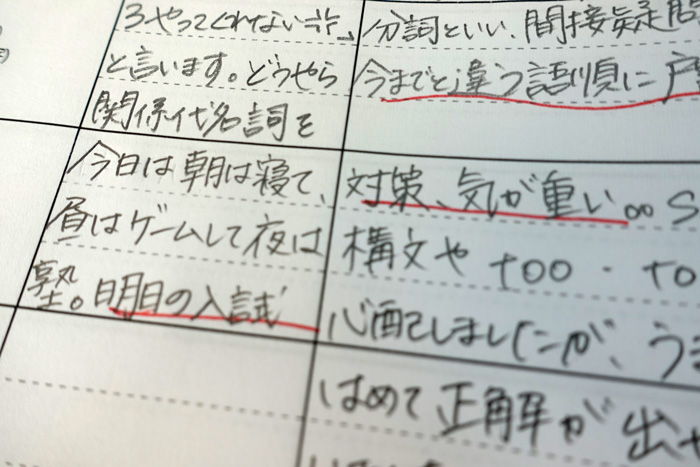 ろやってくれない…」
と言います。どうやら
関係代名詞を
今日は朝は寝て、
昼はゲームして夜は
塾。明日の入試
分詞といい、間接疑問
今までと違う語順に戸
対策、気が重い。。S
構文や too - to
心配してしましたが、う
はめて正解が出せ